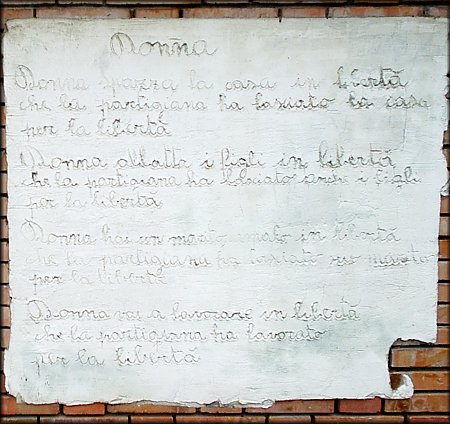 Donna
Donna spazza la casa in libertà
che la partigiana ha lasciato la casa
per la libertà
Donna allatta i figli in libertà
che la partigiana ha lasciato anche i figli
per la libertà
Donna hai un marito amato in libertà
che la partigiana ha lasciato suo marito
per la libertà
Donna vai a lavorare in libertà
che la partigiana ha lavorato
per la libertà